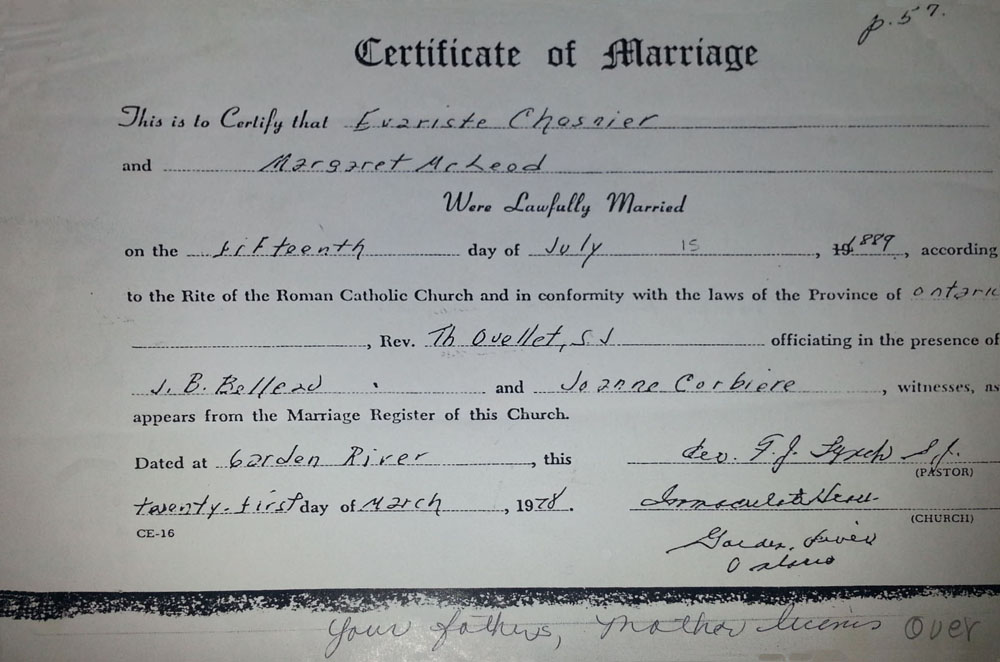 p. 57.
Certificate of Marriage
This is to Certify that Evariste Chosnier
and Margaret McLeod
Were Lawfully Married
on the fifteenth day of July 15, 1889, according
to the Rite of the Roman Catholic Church and in conformity with the laws of the Province of Ontario
, Rev. Th Ouellet, S J officiating in the presence of
J. B. Belleau and Joanne Corbiere, witnesses, as
appears from the Marriage Register of this Church.
Dated at Garden River, this Rev. F. J. Lynch S.J.
(PASTOR)
twenty-first day of March, 1978. Immaculate
(CHURCH)
CE-16
Garden River
Ontario
Your fathers, Mother Over